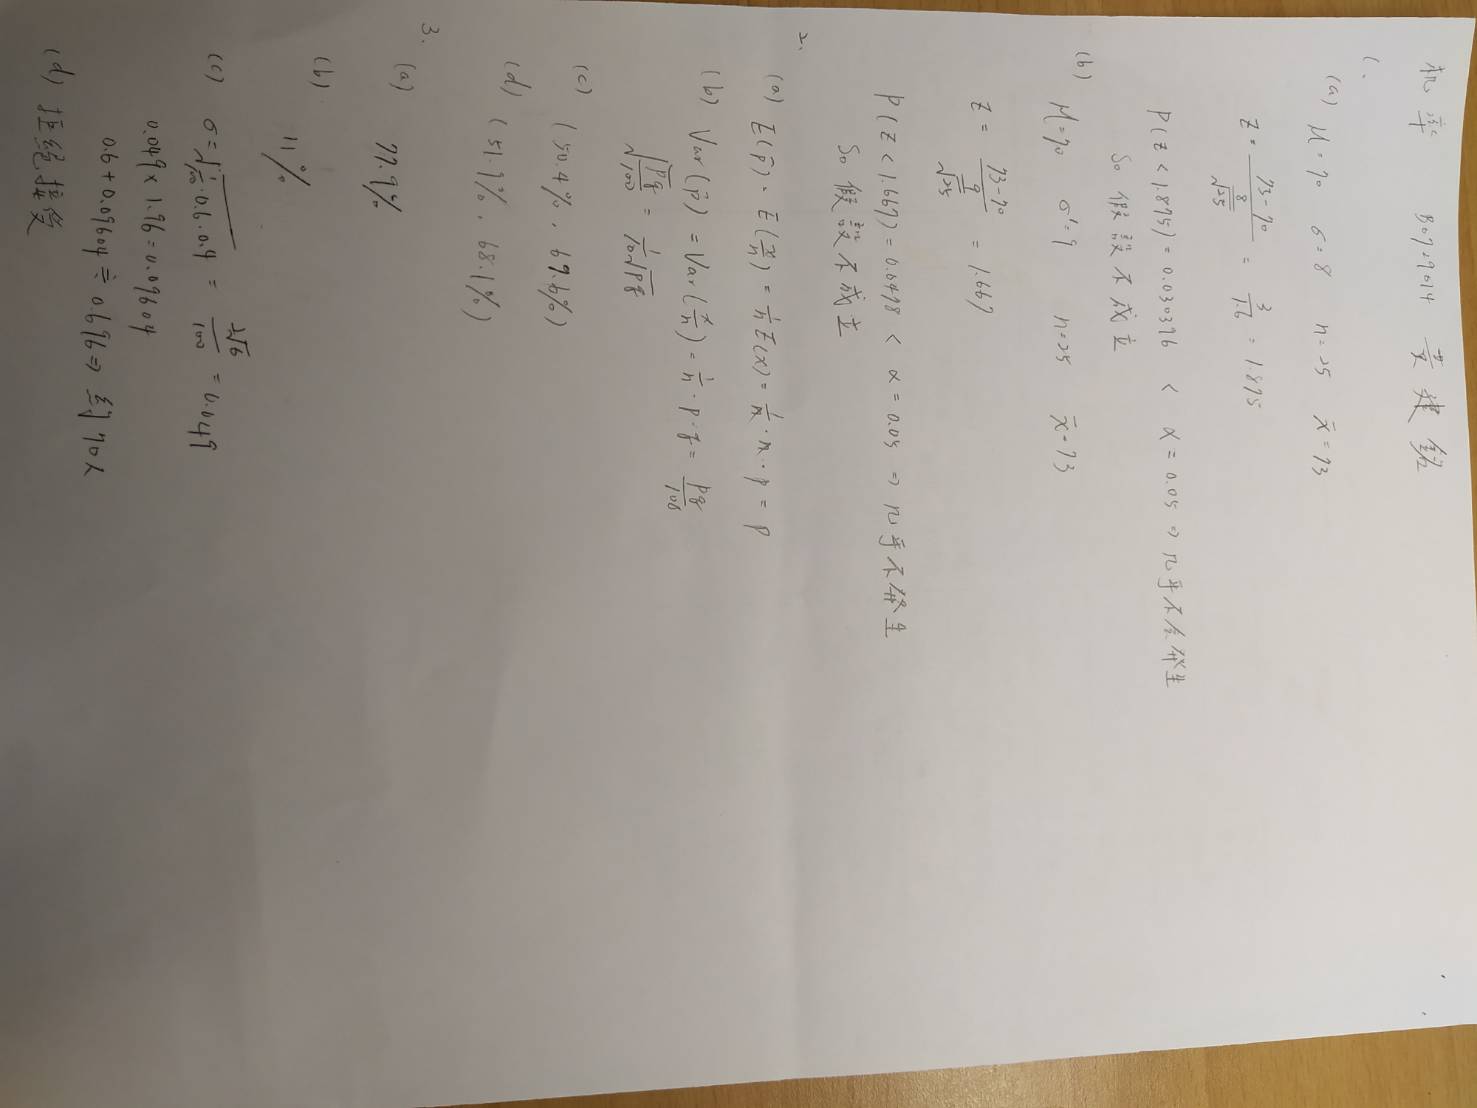 机率 B0729014 黃建銘
1.
(a) μ=70 σ=8 n=25 x̄=73
z = (73-70)/(8/√25) = 3/1.6 = 1.875
P(z<1.875)=0.030396 < α=0.05 ⇒ 几乎不会發生
So 假設不成立
(b) μ=70 σ'=9 n=25 x̄=73
z = (73-70)/(9/√25) = 1.667
P(z<1.667)=0.0478 < α=0.05 ⇒ 几乎不發生
So 假設不成立
2.
(a) E(p̄) = E(x/n) = 1/n E(x) = 1/n · n · p = p
(b) Var(p̄) = Var(x/n) = 1/n · p · q = pq/100
√(pq/100) = 1/10 √pq
(c) (50.4%, 69.6%)
(d) (51.9%, 68.1%)
3.
(a) 77.9%
(b) 11%
(c) σ=√(1/100 · 0.6 · 0.4) = 2√6/100 = 0.049
0.049 × 1.96 = 0.09604
0.6 + 0.09604 ≒ 0.696 ⇒ 約 70人
(d) 拒絕接受